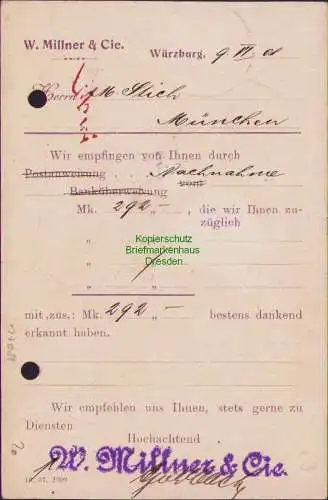 W. Millner & Cie.
Würzburg, 9 VI 01
Herrn M. Stich
München
Wir empfingen von Ihnen durch
Postanweisung . . . Nachnahme
Banküberweisung vom
Mk. 292 „ — die wir Ihnen zu-
züglich
„ „
„ „
mit zus.: Mk. 292 „ — bestens dankend
erkannt haben.
Kopierschutz
Briefmarkenhaus
Dresden
Wir empfehlen uns Ihnen, stets gerne zu
Diensten
Hochachtend
W. Millner & Cie.